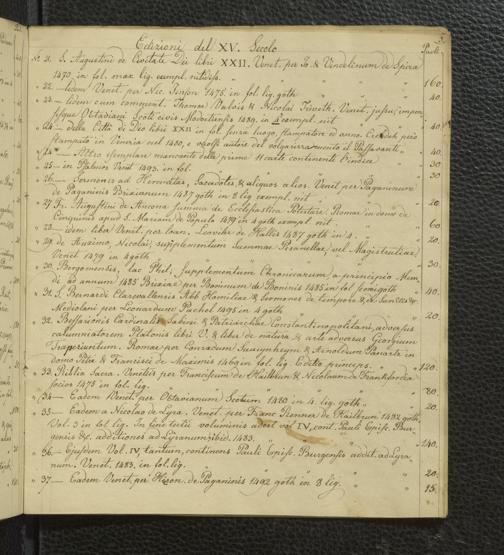 Edizioni del XV. Secolo
5.
Paoli
No. 21. S. Augustini de Civitate Dei libri XXII. Venet. per Jo. & Vindelinum de Spira
1470. in fol. max. lig. exempl. nitidiss. 160.
22. — Iidem Venet. per Nic. Jenson 1475. in fol. lig. goth. 40.
23. — Iidem cum comment. Thomae Valois & Nicolai Triveth. Venet. jussu, impen
sisque Octaviani Scoti civis Modoetiensis 1489. in 4 exempl. nit. 40.
24. — della Città di Dio libri XXII in fol. senza luogo, stampatore ed anno. Credesi però
stampata in Venezia nel 1480, e 40.
24* — Altro esemplare mancante delle prime 11 carte continenti l'indice 30
25. — in Psalmos Venet. 1493. in fol. 30
26. — Sermones ad Heremitas, Sacerdotes, & aliquos alios. Venet. per Paganinum
de Paganinis Brixianum 1487 goth in 8 lig. exempl. nit. 20
27. Augustini de Ancona summa de Ecclesiastica Potestate. Romae in domo de
Cinquinis apud S. Mariam de Populo 1479 in 4 goth exempl. nit. 60.
28. — idem liber Venet. per Joan. Leoviler de Hallis 1487 goth in 4. 20.
29. de Ausimo, Nicolai, supplementum Summae Pisanellae, vel Magistrutiae
Venet. 1479 in 4 goth 30.
30. Bergomensis, Jac. Phil., Supplementum Chronicarum a principio Mun
di ad annum 1485 Brixiae per Boninum de Boninis 1485 in fol. semigoth 40.
31. S. Bernardi Claravallensis Abb. Homiliae & Sermones de tempore & de Sanctis &c.
Mediolani per Leonardum Pachel 1495 in 4 goth 20.
32. Bessarionis Cardinalis Sabini & Patriarchae Constantinopolitani, adversus
calumniatorem Platonis libri V. & liber de natura & arte adversus Georgium
Trapezuntium. Romae per Conradum Suueynheym & Arnoldum Panartz in
domo Petri & Francisci de Maximis 1469 in fol. lig. Editio princeps. 120.
33. Biblia Sacra. Venetiis per Franciscum de Hailbrun & Nicolaum de Frankfordia
socios 1475 in fol. lig. 80.
34. — Eadem Venet. per Octavianum Scotum 1480 in 4. lig. goth. 20.
35. — Eadem a Nicolao de Lyra. Venet. per Franc. Renner de Hailbrun 1482 goth
Vol. 3 in fol. lig. In fine tertii voluminis adest vol. IV. cont. Pauli Episc. Bur-
gensis &c. additiones ad Lyranum ibid. 1483. 140.
36. — Ejusdem Vol. IV. tantum, continens Pauli Episc. Burgensis addit. ad Lyra
num. Venet. 1483. in fol. lig. 20.
37. — Eadem Venet. per Hieron. de Paganinis 1492 goth in 8 lig. 15.